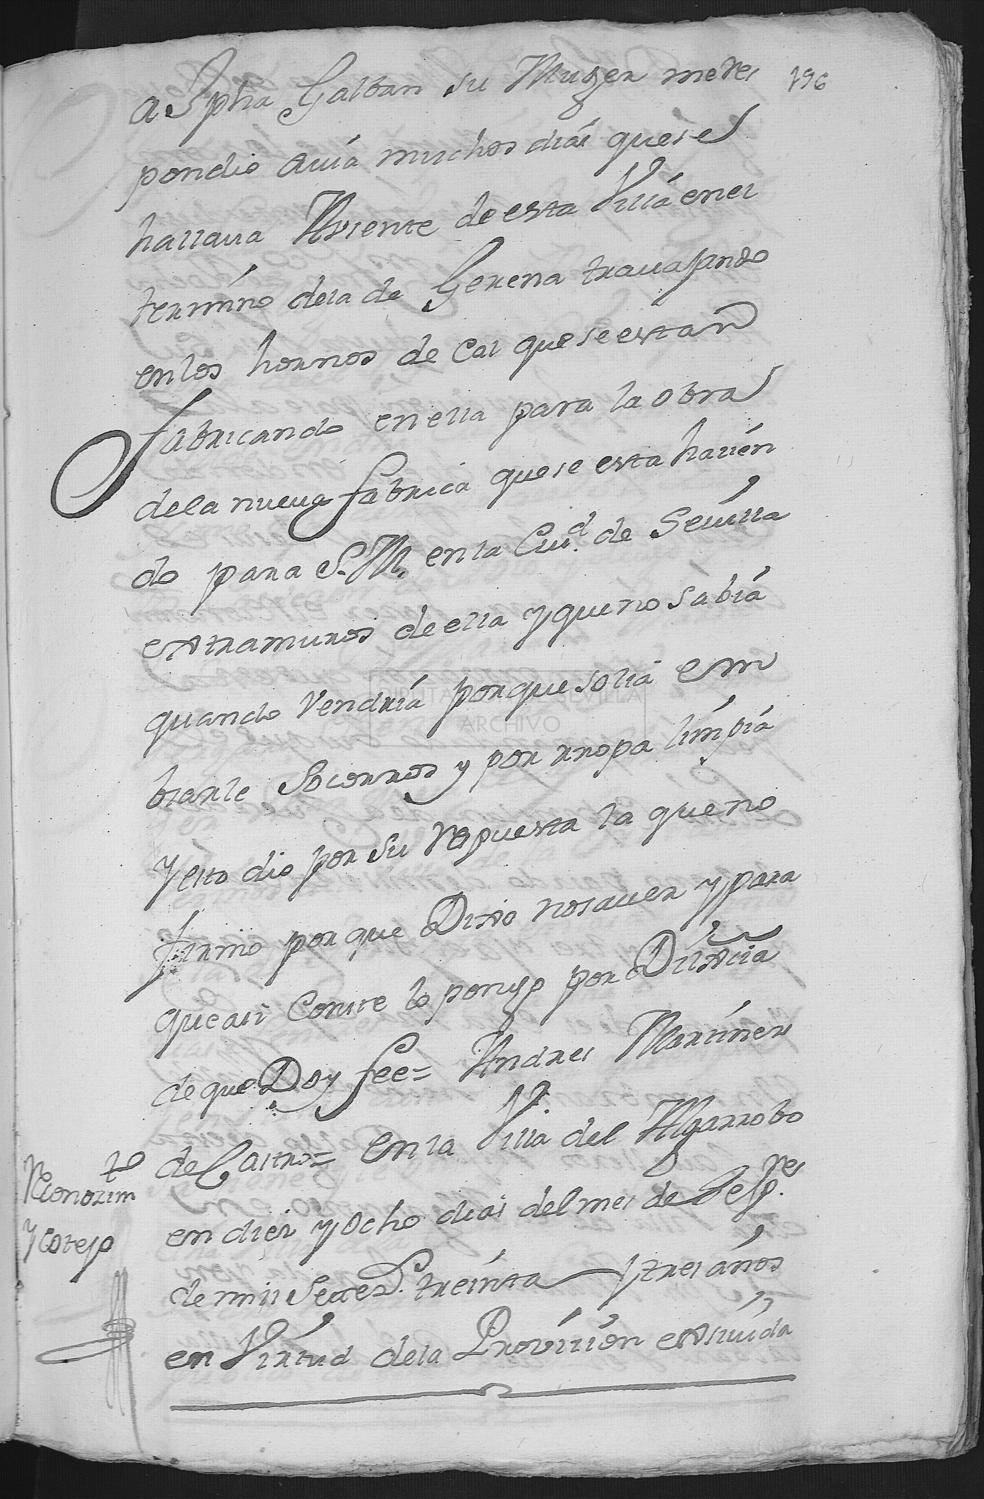 196
a Jpha Galban su Muger me rres
pondio auía muchos diás que se
hallaua Ausente de esta Villa en el
termíno de la de Gerena trauajando
en los hornos de Cal que se estan
fabricando en ella para la obra
de la nueua fabrica que se esta hauién
do para S. M. en la Ciud. de Seuilla
extramuros de ella y que no sabiá
quando Vendría porque solia em
biarle Socorros y por rropa límpiá
y esto dio por su respuesta la que no
firmo porque Dixo no sauer y para
que asi Conste lo pongo por Dilixcia
de que Doy fee = Andres Martínes
de Castro = En la Villa del Algarrobo
en dies y ocho dias del mes de Sepres.
de mil Setezs. treínta y tres años
en Vírtud de la Províción exsiuida
Reconozimto
y cotejo
DIPUTACIÓN DE SEVILLA
ARCHIVO